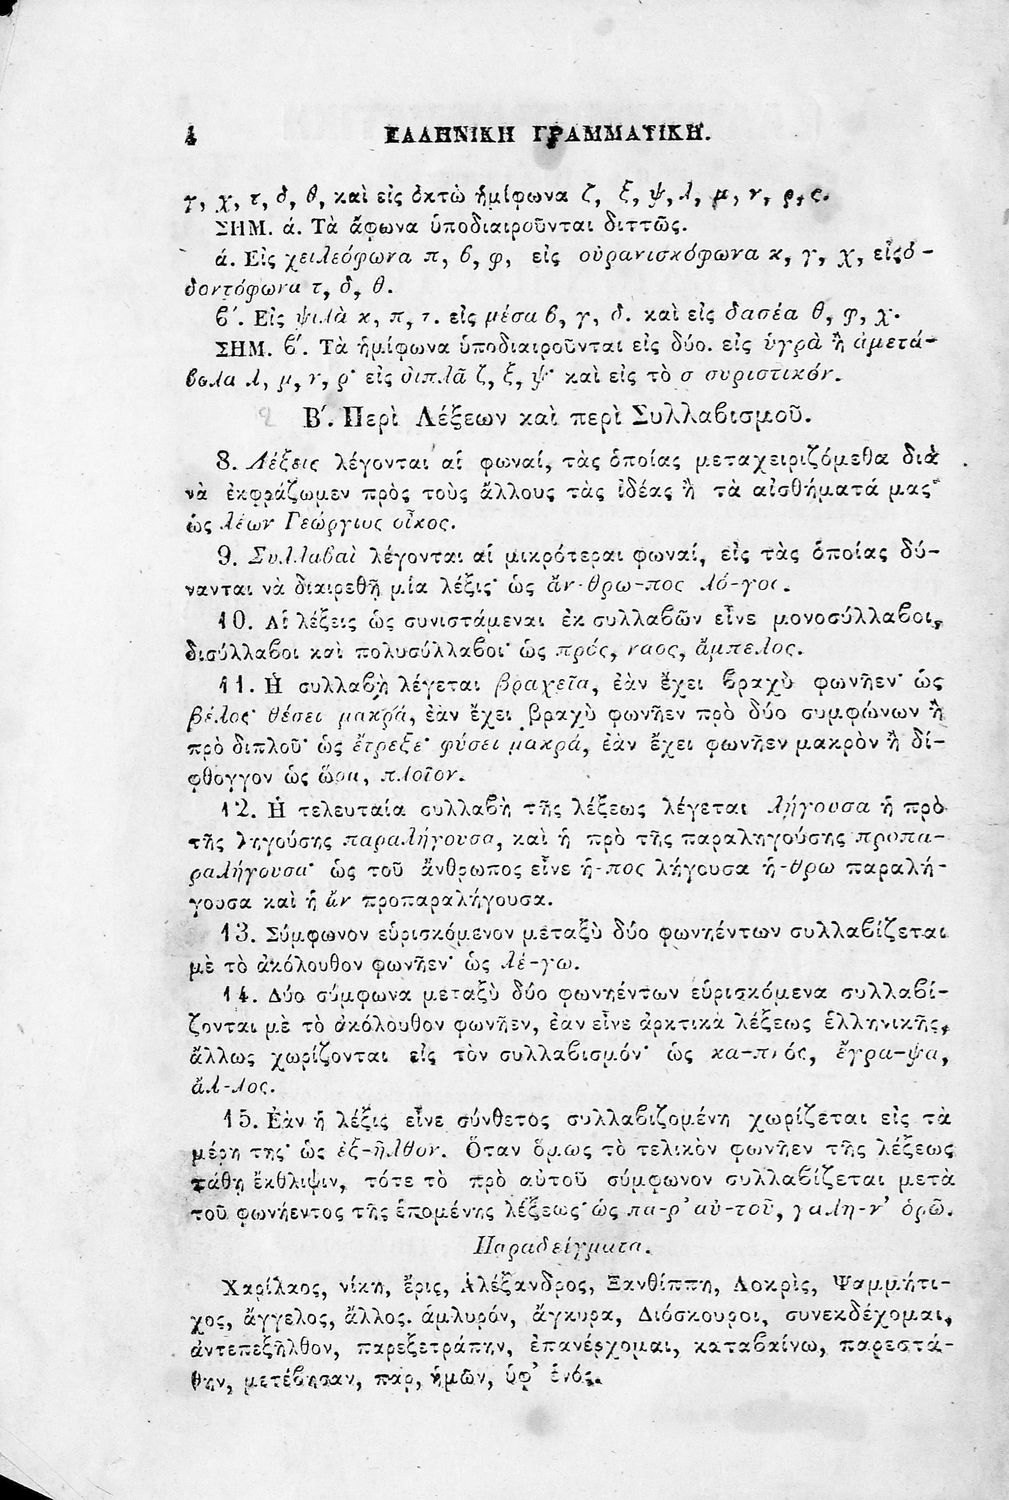 4 ΕΛΛΗΝΙΚΗ ΓΡΑΜΜΑΤΙΚΗ.
γ, χ, τ, δ, θ, καὶ εἰς ὀκτὼ ἡμίφωνα ζ, ξ, ψ, λ, μ, ν, ρ, ς.
ΣΗΜ. ά. Τὰ ἄφωνα ὑποδιαιροῦνται διττῶς.
ά. Εἰς χειλεόφωνα π, β, φ, εἰς οὐρανισκόφωνα κ, γ, χ, εἰς ὀ-
δοντόφωνα τ, δ, θ.
β΄. Εἰς ψιλὰ κ, π, τ. εἰς μέσα β, γ, δ. καὶ εἰς δασέα θ, φ, χ.
ΣΗΜ. β΄. Τὰ ἡμίφωνα ὑποδιαιροῦνται εἰς δύο. εἰς ὑγρὰ ἢ ἀμετά-
βολα λ, μ, ν, ρ· εἰς διπλᾶ ζ, ξ, ψ· καὶ εἰς τὸ σ συριστικόν.
Β΄. Περὶ Λέξεων καὶ περὶ Συλλαβισμοῦ.
8. Λέξεις λέγονται αἱ φωναί, τὰς ὁποίας μεταχειριζόμεθα διὰ
νὰ ἐκφράζωμεν πρὸς τοὺς ἄλλους τὰς ἰδέας ἢ τὰ αἰσθήματά μας·
ὡς λέων Γεώργιος οἶκος.
9. Συλλαβαὶ λέγονται αἱ μικρότεραι φωναί, εἰς τὰς ὁποίας δύ-
νανται νὰ διαιρεθῇ μία λέξις· ὡς ἄν-θρω-πος λό-γος.
10. Αἱ λέξεις ὡς συνιστάμεναι ἐκ συλλαβῶν εἶνε μονοσύλλαβοι,
δισύλλαβοι καὶ πολυσύλλαβοι· ὡς πρός, ναος, ἄμπελος.
11. Ἡ συλλαβὴ λέγεται βραχεῖα, ἐὰν ἔχει βραχὺ φωνῆεν· ὡς
βέλος· θέσει μακρά, ἐὰν ἔχει βραχὺ φωνῆεν πρὸ δύο συμφώνων ἢ
πρὸ διπλοῦ· ὡς ἔτρεξε· φύσει μακρά, ἐὰν ἔχει φωνῆεν μακρὸν ἢ δί-
φθογγον ὡς ὥρα, πλοῖον.
12. Ἡ τελευταία συλλαβὴ τῆς λέξεως λέγεται λήγουσα ἡ πρὸ
τῆς ληγούσης παραλήγουσα, καὶ ἡ πρὸ τῆς παραληγούσης προπα-
ραλήγουσα· ὡς τοῦ ἄνθρωπος εἶνε ἡ-πος λήγουσα ἡ-θρω παραλή-
γουσα καὶ ἡ ἄν προπαραλήγουσα.
13. Σύμφωνον εὑρισκόμενον μεταξὺ δύο φωνηέντων συλλαβίζεται
μὲ τὸ ἀκόλουθον φωνῆεν· ὡς λέ-γω.
14. Δύο σύμφωνα μεταξὺ δύο φωνηέντων εὑρισκόμενα συλλαβί-
ζονται μὲ τὸ ἀκόλουθον φωνῆεν, ἐαν εἶνε ἀρκτικὰ λέξεως ἑλληνικῆς,
ἄλλως χωρίζονται εἰς τὸν συλλαβισμόν· ὡς κα-πνός, ἔγρα-ψα,
ἄλ-λος.
15. Ἐὰν ἡ λέξις εἶνε σύνθετος συλλαβιζομένη χωρίζεται εἰς τὰ
μέρη της· ὡς ἐξ-ῆλθον. Ὅταν ὅμως τὸ τελικὸν φωνῆεν τῆς λέξεως
πάθῃ ἔκθλιψιν, τότε τὸ πρὸ αὐτοῦ σύμφωνον συλλαβίζεται μετὰ
τοῦ φωνήεντος τῆς ἑπομένης λέξεως· ὡς πα-ρ’ αὐ-τοῦ, γαλη-ν’ ὁρῶ.
Παραδείγματα.
Χαρίλαος, νίκη, ἔρις, Ἀλέξανδρος, Ξανθίππη, Λοκρὶς, Ψαμμήτι-
χος, ἄγγελος, ἄλλος. ἁμλυρόν, ἄγκυρα, Διόσκουροι, συνεκδέχομαι,
ἀντεπεξῆλθον, παρεξετράπην, ἐπανέρχομαι, καταβαίνω, παρεστά-
θην, μετέβησαν, παρ, ἡμῶν, ὑφ’ ἑνός.